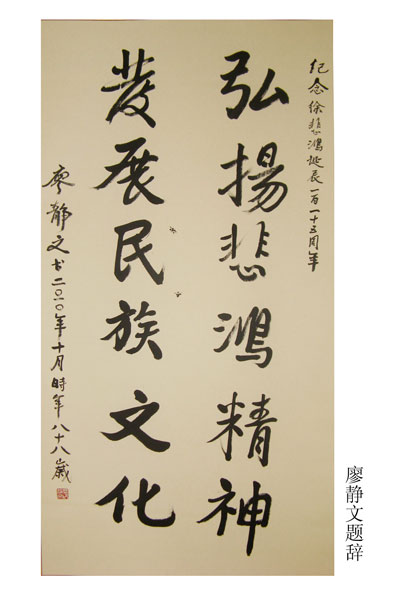 纪念徐悲鸿诞辰一百一十五周年
弘揚悲鴻精神
發展民族文化
廖静文书二〇一〇年十月時年八十八歲
廖静文题辞